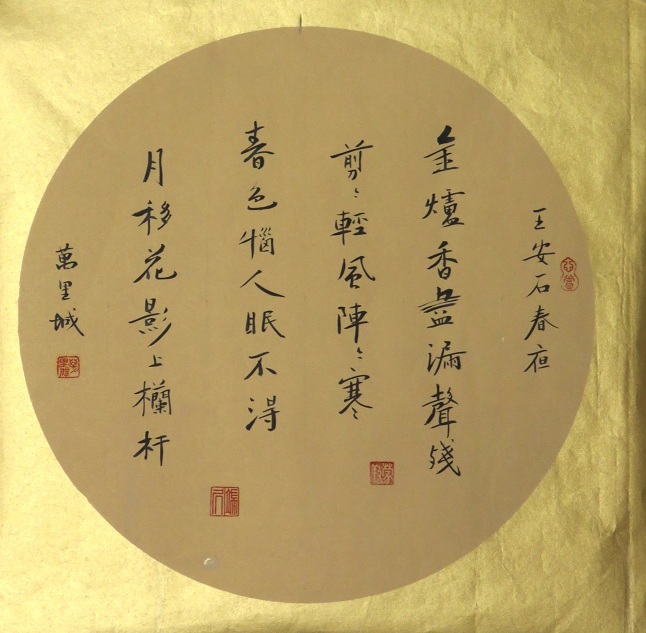 王安石春夜
金爐香盡漏聲殘
剪〻輕風陣〻寒
春色惱人眠不得
月移花影上欄杆
萬里城